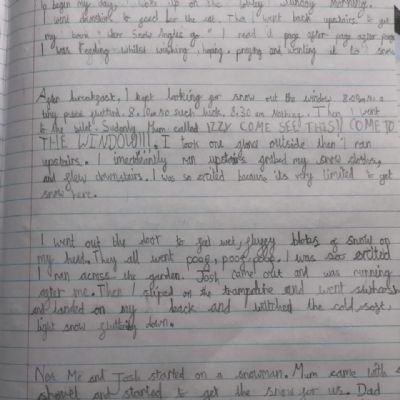 To begin my day, I woke up on the Sunday morning.
I went downstairs to feed for the cat. Then I went back upstairs to get
my book "Where Snow Angles go". I read it page after page after page
I was Feeding whilst wishing, hoping, praying and wanting it to snow
After breakfast, I kept looking for snow out the window 8:05
tiny piece fluttered. 8:10 no such luck. 8:30 am Nothing. Then I went
to the toilet. Suddenly Mum called IZZY COME SEE THIS!! COME TO
THE WINDOW!!!. I took one glance outside then I ran
upstairs. I imerdiantly ran upstairs grabed my snow clothes
and flew downstairs. I was so exited because its very limited to get
snow here.
I went out the door to get wet, fluggy blobs of snow on
my head. They all went poof, poof, poof. I was soo exited
I ran across the garden. Josh came out and was running
after me. Then I sliped on the trampoline and went
and landed on my back and watched the cold, soft,
light snow fluttering down.
Now Me and Josh started on a snowman. Mum came with a
shovel and started to get the snow for us. Dad